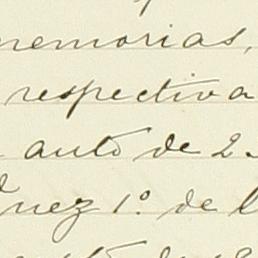 memorias,
respectiva
auto de 2.
Juez 1º de l